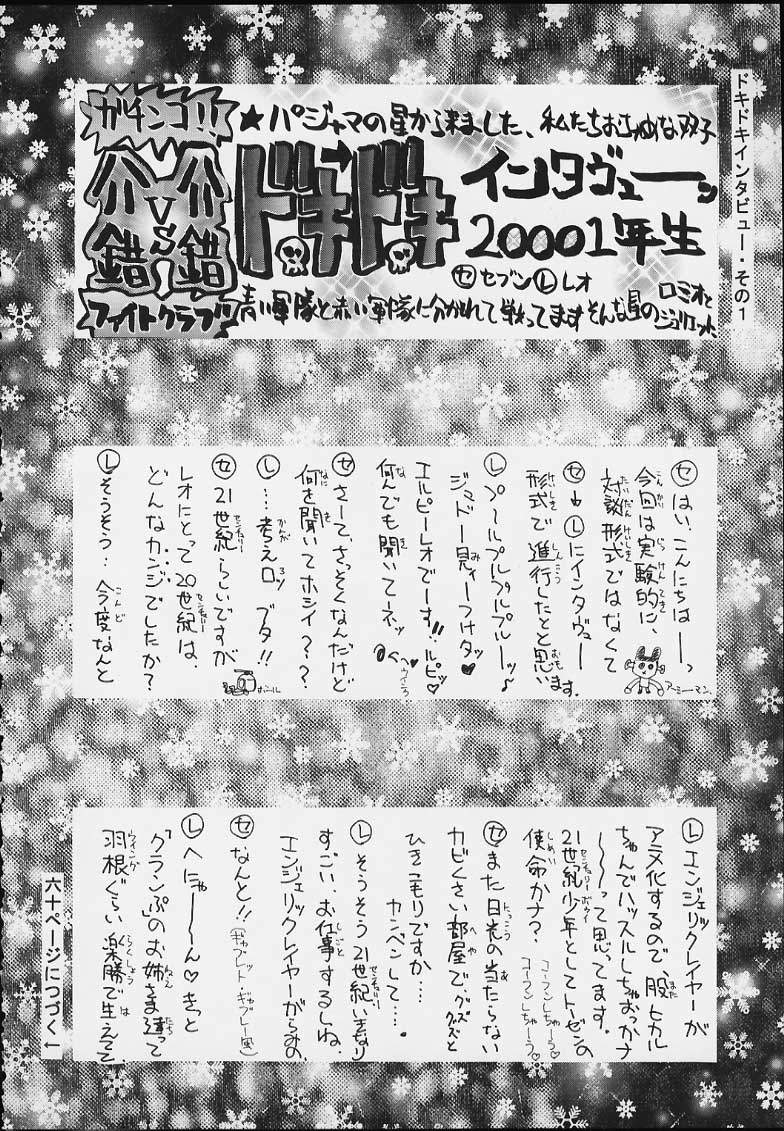 ドキドキインタビュー・その1
ガチンコ!!
介錯
VS
介錯
ファイトクラブ
★パジャマの星から来ました、私たちおちゃめな双子
ドキドキ
インタヴューーッ
20001年生
セ セブン レ レオ
青い軍隊と赤い軍隊に分かれて戦ってます そんな星の
ロミオと
ジュリエット
セ はい、こんにちはーっ
今回は実験的に、
対談形式ではなくて
セ→レにインタヴュー
形式で進行したと思います。
アーミーマン。
レ プールプルプルプルーッ♪
ジュドー見ィーつけタッ♥
エルピーレオでーす!!ルピッ♡
何んでも聞いてーネッ
セ さーて、さっそくなんだけど
何を聞いてホシイ???
レ …考えロッ ブタ!!
セ 21世紀らしいですが
レオにとって20世紀は、
どんなカンジでしたか?
ボール
レ そうそう‥今度なんと
レ エンジェリックレイヤーが
アニメ化するので、股ヒカル
ちゃんでハッスルしちゃおっかナ
〜〜〜って思ってます。
21世紀少年としてトーゼンの
使命かナ?
コーフンしちゃーう♡
コーフンしちゃーう♡
セ また日光の当たらない
カビくさい部屋で、グズグズと
ひきこもりですか…
カンベンして…。
レ そうそう21世紀いきなり
すごい、お仕事するしね、
エンジェリックレイヤーがらみの
セ なんと!!(ギャブレット・ギャブレー風)
レ へにゃ〜〜ん♡きっと
「クランぷ」のお姉さま達って
羽根ぐらい楽勝で生えてて
六十ページにつづく←